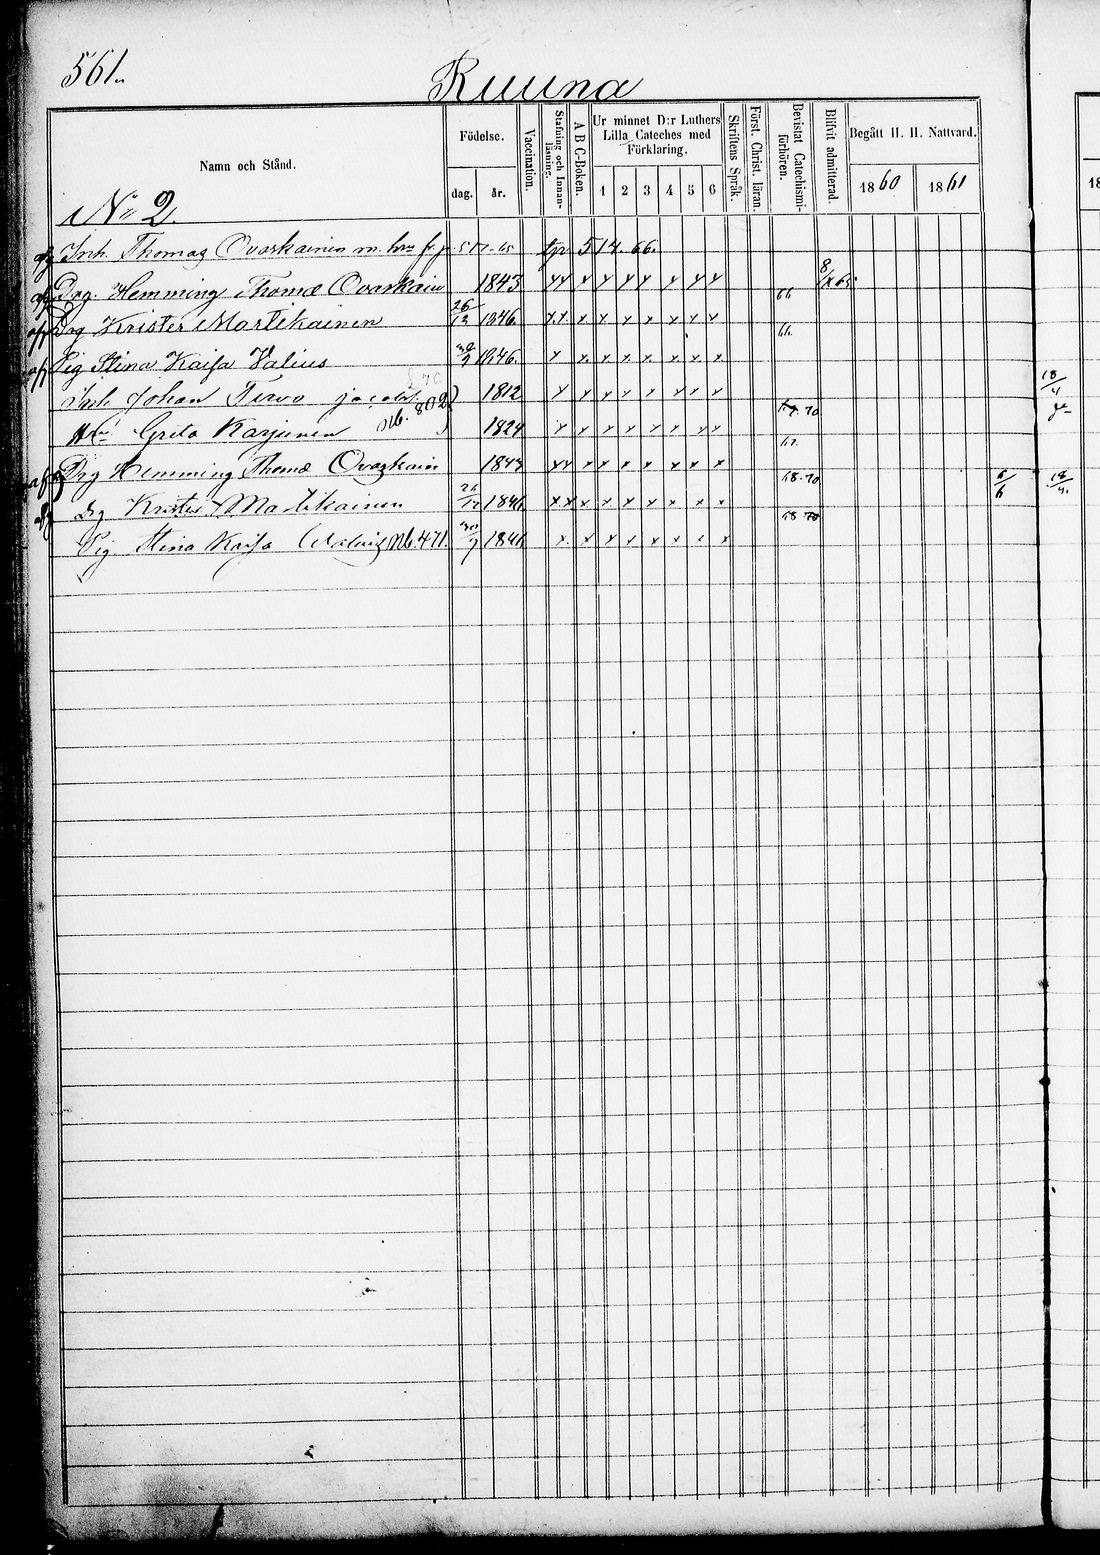 561
Ruuna
Namn och Stånd.
Födelse.
dag.
år.
Vaccination.
Stafning och Innan-läsning.
A B C-Boken.
Ur minnet D:r Luthers
Lilla Cateches med
Förklaring.
1 2 3 4 5 6
Skriftens Språk.
Först. Christ. läran.
Bevistat Catechismi-förhören.
Blifvit admitterad.
Begått H. H. Nattvard.
1860 1861
No 2.
Inh. Thomas Ovaskainen m. 514.66.
Drg. Hemming Thomæ Ovaskain 1843 x x x x x x x x x
Drg Krister Martikainen 26/12 1846 x x x x x x x x x 66
Pig Stina Kaisa Valius 1846 x x x x x x x x 66.
Inh. Johan Tervo 1812 x x x x x x x x 18/4
Hu Greta Karjunen Nb. 802 1824 x x x x x x x x 70
Drg Hemming Thomæ Ovaskain 1843 x x x x x x x x x
Drg Krister Martikainen 26/12 1846 x x x x x x x x x 68.70 6/6 18/4
Pig Stina Kaisa Nb. 471. 1846 x x x x x x x x 68 70